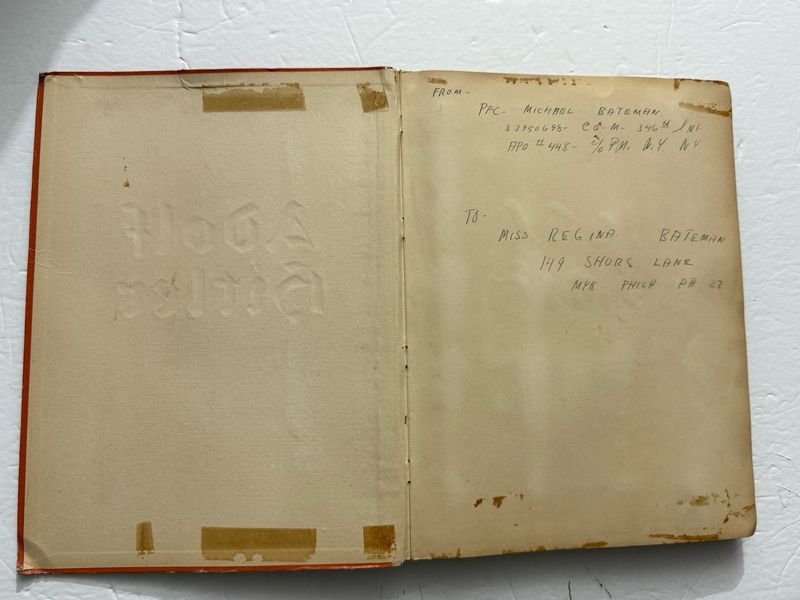 Adolf
Hitler
FROM-
PFC- MICHAEL BATEMAN
33950698- Co- M- 346th INF
APO #448- c/o P.M. N.Y. N.Y
TO-
MISS REGINA BATEMAN
149 SHURS LANE
MYK PHILA PA 27